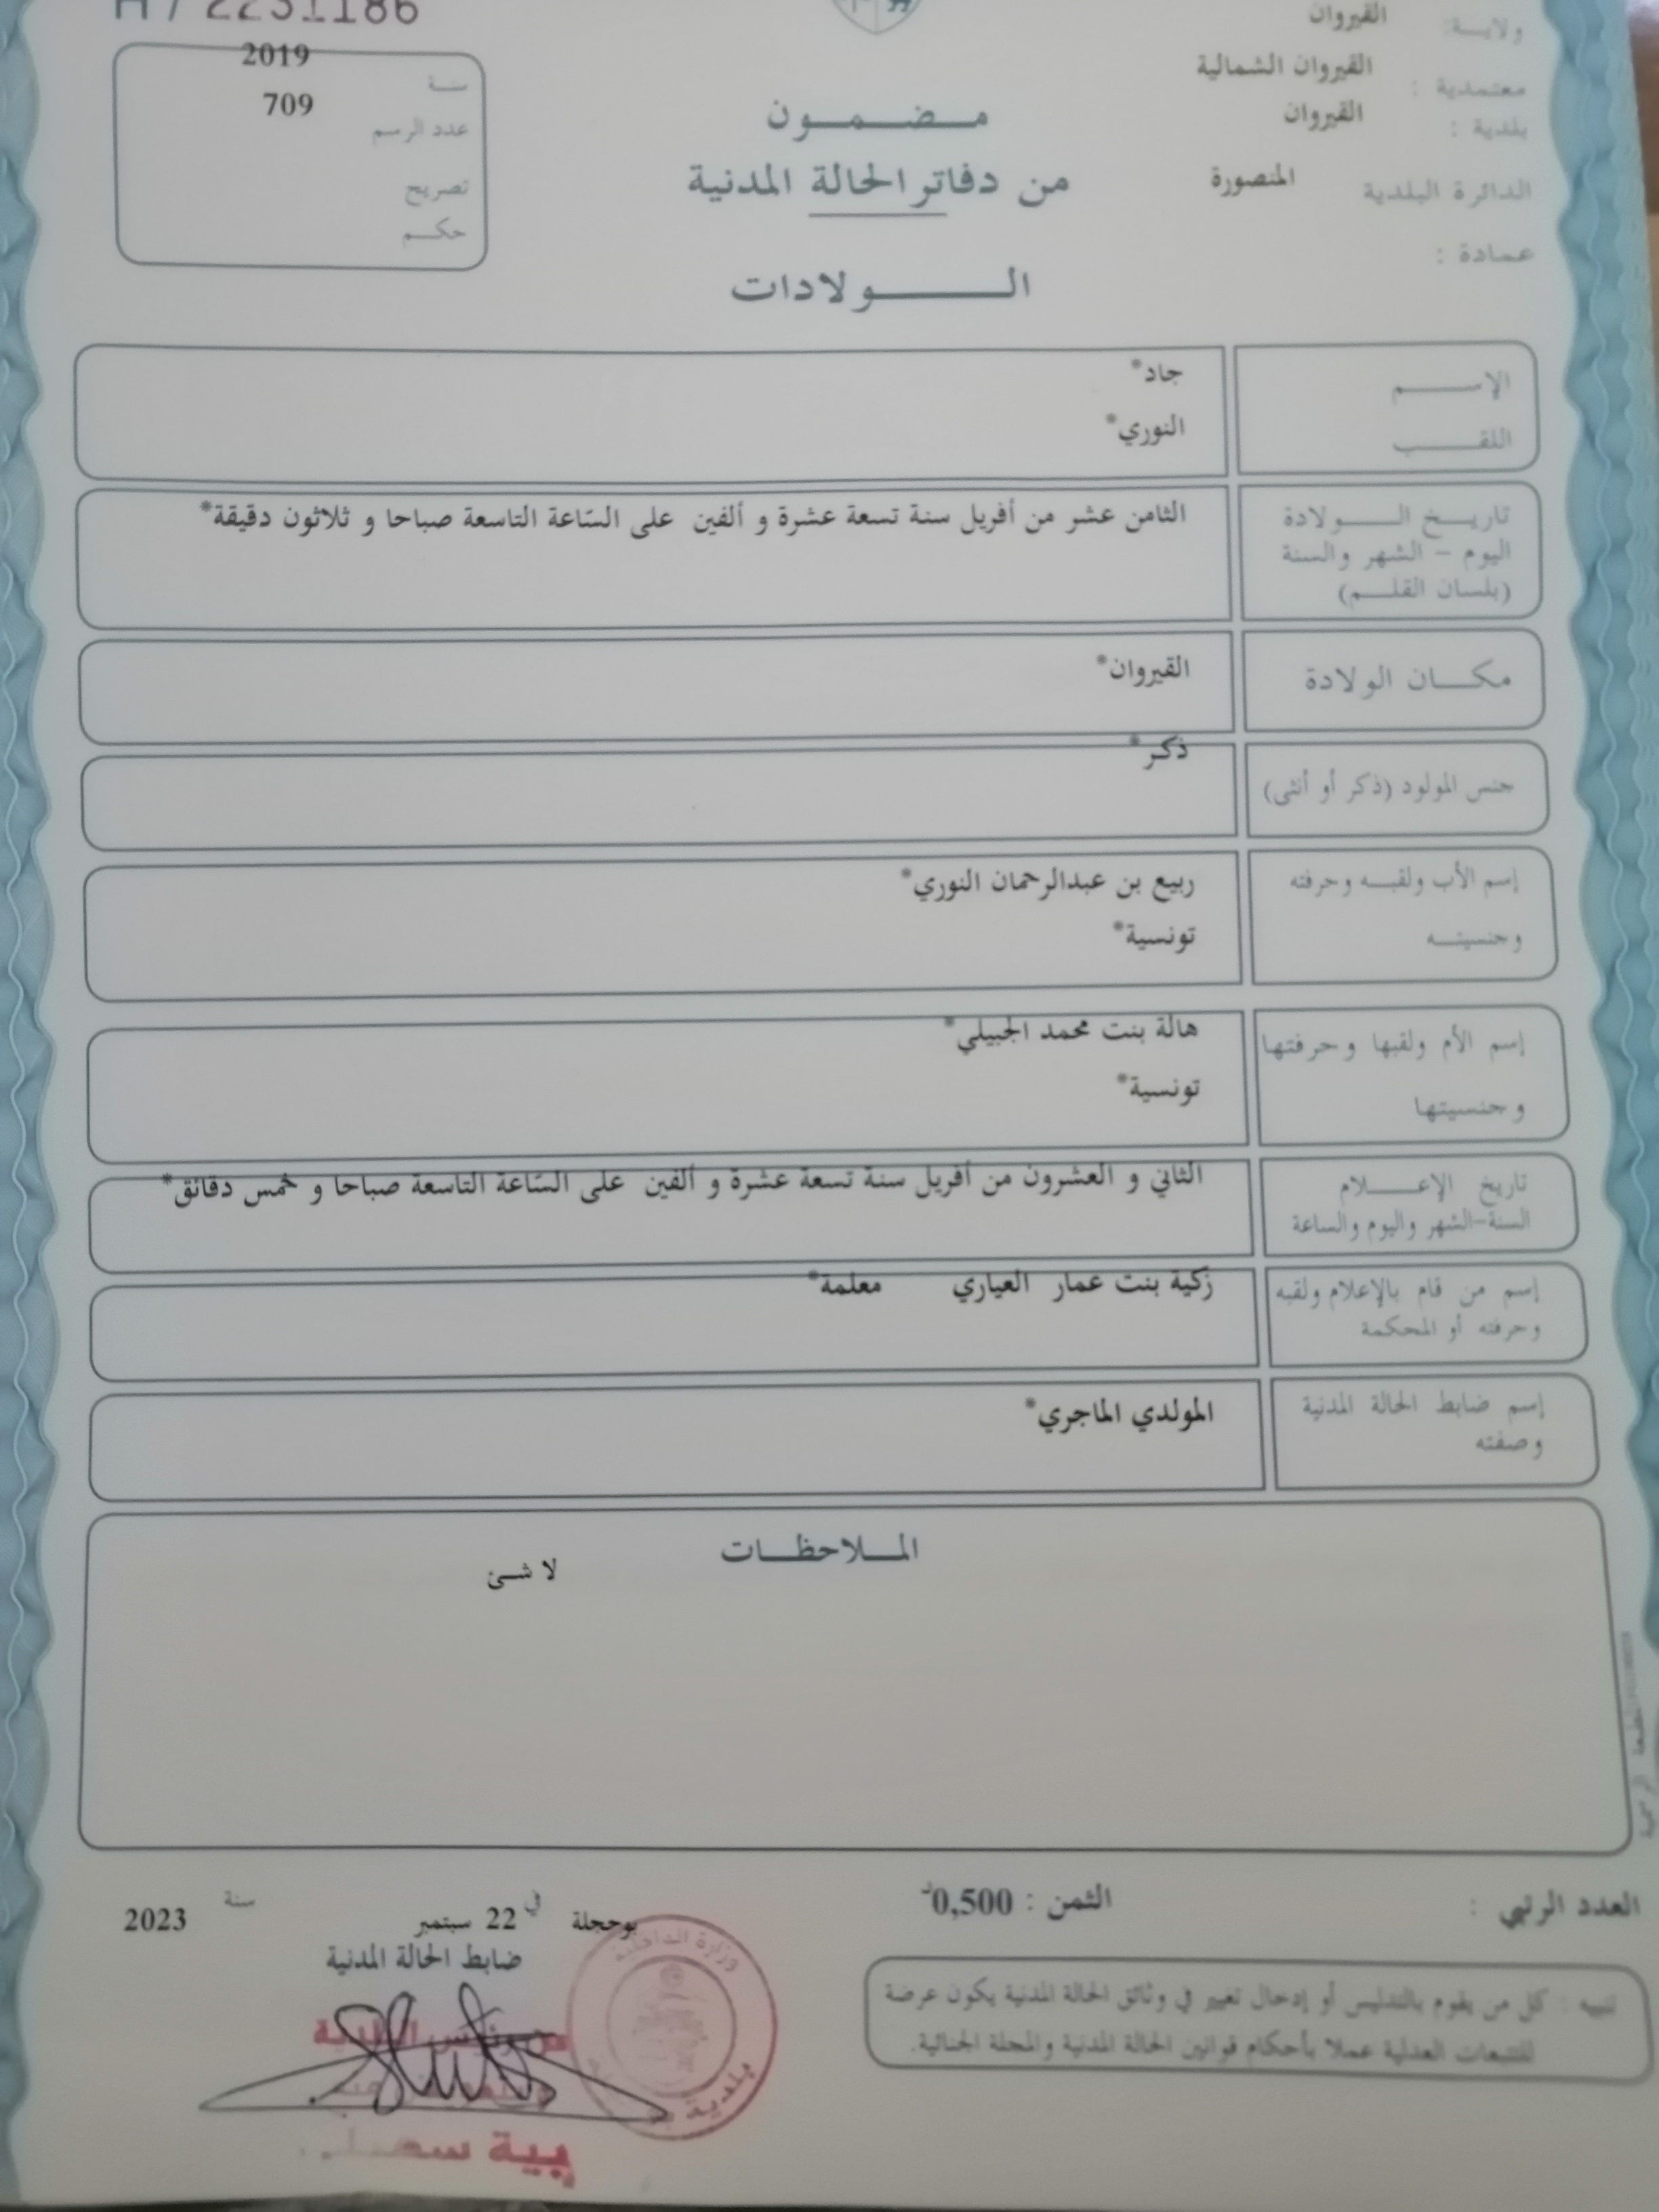 H / 2231186
ولايـة: القيروان
معتمدية : القيروان الشمالية
بلدية : القيروان
الدائرة البلدية المنصورة
عمادة :
سنة 2019
عدد الرسم 709
تصريح
حكم
مضمون
من دفاتر الحالة المدنية
الولادات
الإسم جاد*
اللقب النوري*
تاريخ الولادة
اليوم - الشهر والسنة
(بلسان القلم)
الثامن عشر من أفريل سنة تسعة عشرة و ألفين على السّاعة التاسعة صباحا و ثلاثون دقيقة*
مكان الولادة القيروان*
جنس المولود (ذكر أو أنثى) ذكر*
إسم الأب ولقبه وحرفته ربيع بن عبدالرحمان النوري*
وجنسيته تونسية*
إسم الأم ولقبها وحرفتها هالة بنت محمد الجبيلي*
وجنسيتها تونسية*
تاريخ الإعلام
السنة-الشهر واليوم والساعة
الثاني و العشرون من أفريل سنة تسعة عشرة و ألفين على السّاعة التاسعة صباحا و خمس دقائق*
إسم من قام بالإعلام ولقبه
وحرفته أو المحكمة
زكية بنت عمار العياري معلمة*
إسم ضابط الحالة المدنية
وصفته
المولدي الماجري*
الملاحظات
لا شئ
العدد الرتبي :
الثمن : 0,500د
بوحجلة في 22 سبتمبر سنة 2023
ضابط الحالة المدنية
تنبيه : كل من يقوم بالتدليس أو إدخال تغيير في وثائق الحالة المدنية يكون عرضة
للتتبعات العدلية عملا بأحكام قوانين الحالة المدنية والمجلة الجنائية.
وزارة الداخلية
بلدية